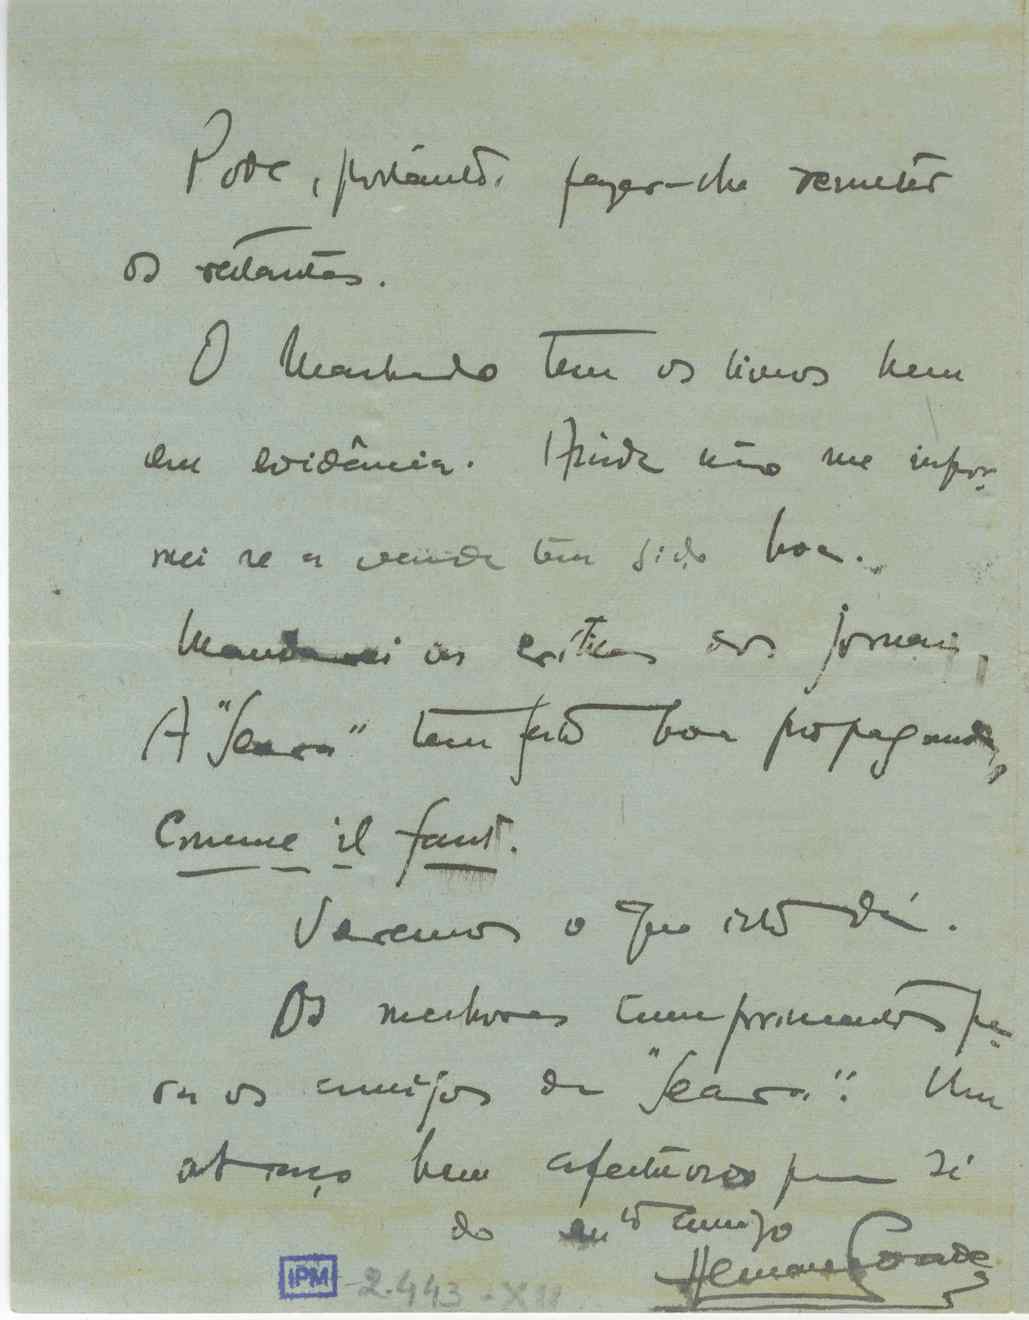 Pode, portanto, fazer-lhe remeter
os restantes.
O Machado tem os livros bem
em evidência. Ainda não me infor-
mei se a venda tem sido boa.
Mandarei as críticas dos jornais.
A "Seara" tem feito boa propaganda,
Comme il faut.
Veremos o que isto dá.
Os melhores cumprimentos pa-
ra os amigos da "Seara". Um
abraço bem afectuoso para si
do mto amigo
IPM 2.443-XII